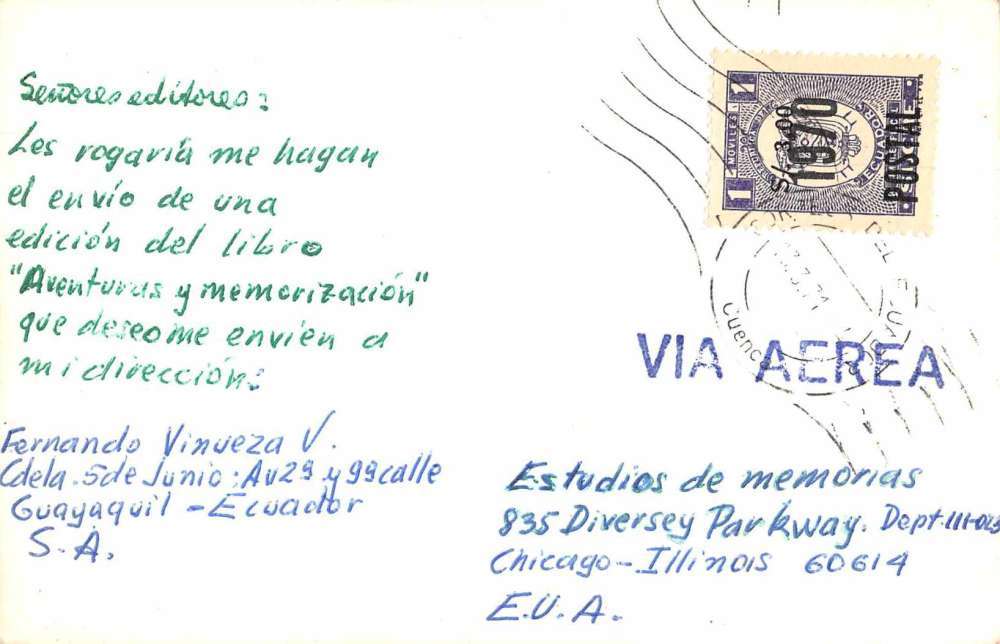 Señores editores:
Les rogaría me hagan
el envío de una
edición del libro
"Aventuras y memorización"
que deseo me envíen a
mi dirección:
Fernando Vinueza V.
Cdela. 5 de Junio: Av 2ª y 9ª calle
Guayaquil - Ecuador
S.A.
1 MOVILES 1
ECUADOR
S/. 3,00
1970
POSTAL
DEL ECUADOR
Cuenca
VIA AEREA
Estudios de memorias
835 Diversey Parkway. Dept. 111-
Chicago - Illinois 60614
E.U.A.